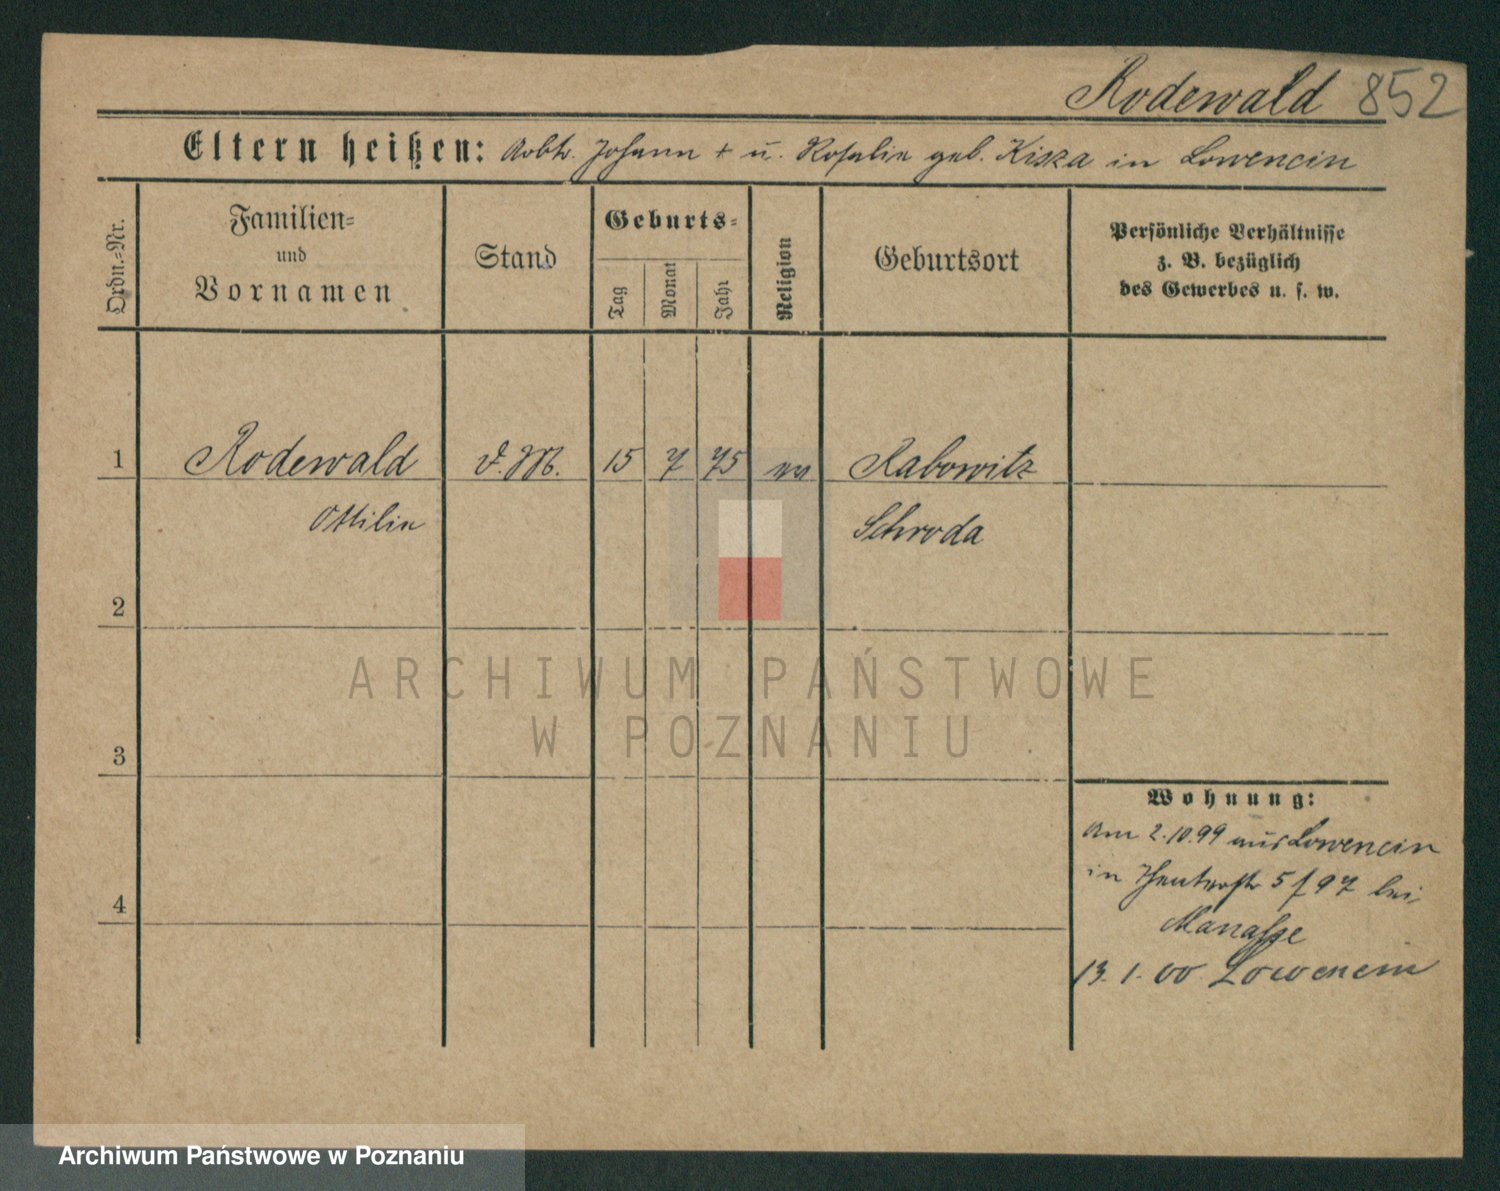 Rodewald 852
Eltern heißen: Arbtr. Johann + u. Rosalie geb. Kiska in Lowencin
Ordn.-Nr.
Familien-
und
Vornamen
Stand
Geburts-
Tag
Monat
Jahr
Religion
Geburtsort
Persönliche Verhältnisse
z. B. bezüglich
des Gewerbes u. s. w.
1 Rodewald d. M. 15 7 75 ev Rabowitz
Ottilie Schroda
2
3
4
ARCHIWUM PAŃSTWOWE
W POZNANIU
Wohnung:
Am 2.10.99 aus Lowencin
in 5/97 bei
Manasse
13. 1. 00 Lowencin
Archiwum Państwowe w Poznaniu